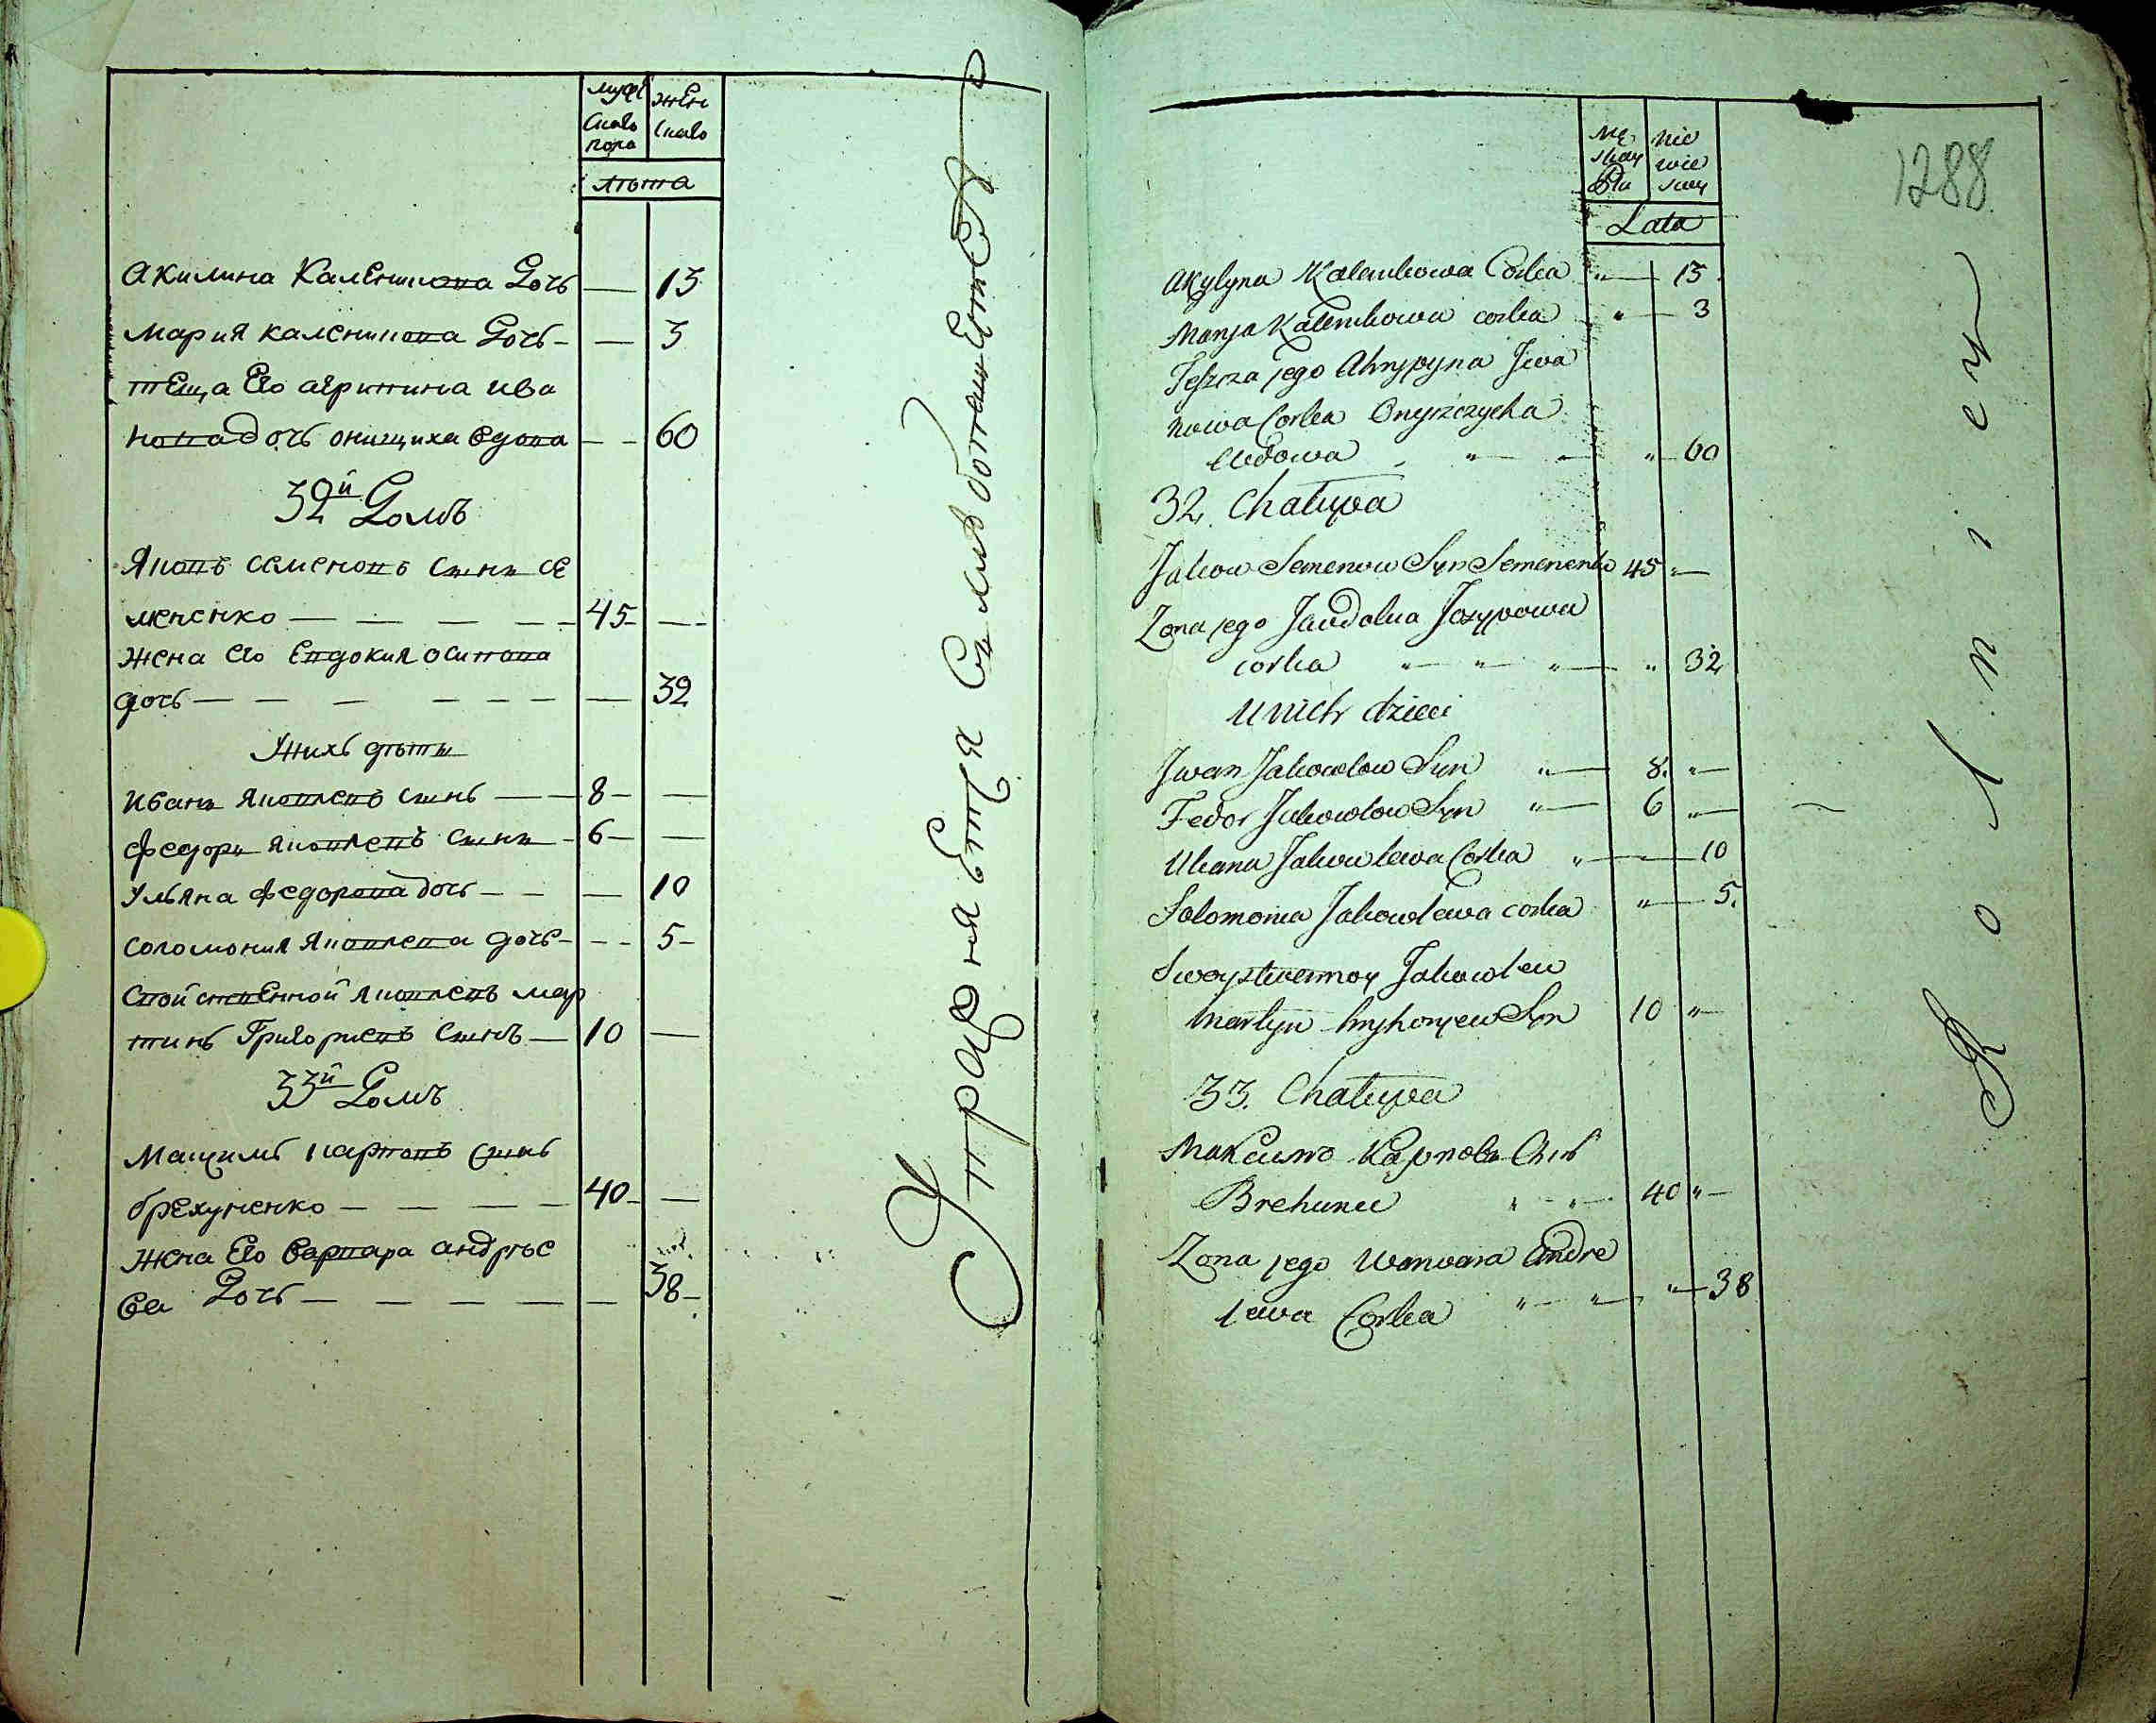 мужескаго пола
женскаго
лѣта
Акилина Каленикова Дочь — 13
Мария каленикова Дочь — — 3
тЕща Его агрипина ива
нова дочь онищиха вдова — — 60
32й Домъ
Яковъ семеновъ сынъ се
мененко — — — — — 45 —
жена его Евдокия осипова
дочь — — — — — — — 32
У нихъ дѣти
иванъ яковлевъ сынъ — — 8 — —
федоръ яковлевъ сынъ — 6 — —
Ульяна федорова дочь — — — 10
соломония яковлева дочь — — — 5 —
свойственной яковлевъ мар
тинъ Григориевъ сынъ — 10 —
33й Домъ
Мацимъ карповъ сынъ
брехуненко — — — — 40 — —
жена Его варвара андрѣе
ва Дочь — — — — — 38 —
mę skey płci
nie wie scey
Lata
1288
Akylyna Kalenikowa Corka „— 13
Marya Kalenikowa corka „ — 3
Teszcza jego Ahrypyna Iwa
nowa Corka Onyszczycha
wdowa „ — — „— 60
32. Chatupa
Jakow Semenow Syn Semenenko 45 „—
Zona jego Jawdokia Jozypowa
corka „— „— „— „ 32
U nich dzieci
Iwan Jakowlow Syn „— 8. „—
Fedor Jakowlow Syn „— 6 „—
Uliana Jakowlewa Corka „— — 10
Solomonia Jakowlewa corka „— 5.
Swoystwennoy Jakowlew
Martyn hryhoryew Syn 10 „—
33. Chatupa
Максимъ Карповъ Снъ
Brehunu „ — „— 40 „—
Zona jego Warwara Andre
iewa Corka „— „— „— 38
R o l n i c y